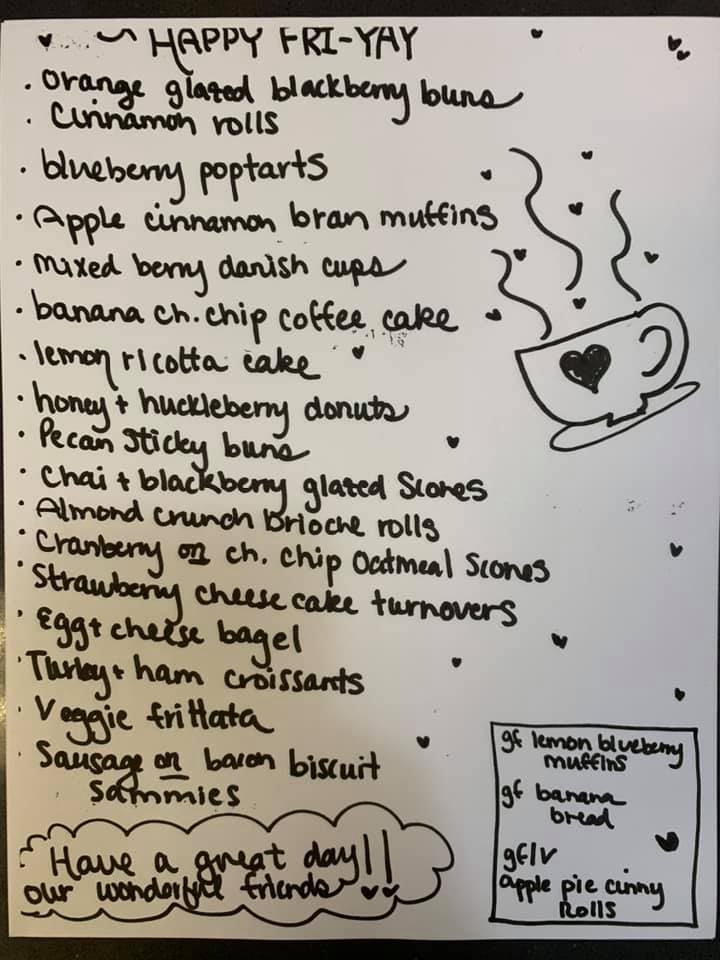 HAPPY FRI-YAY
· orange glazed blackberry buns
· Cinnamon rolls
· blueberry poptarts
· Apple cinnamon bran muffins
· mixed berry danish cups
· banana ch. chip coffee cake
· lemon ricotta cake
· honey + huckleberry donuts
· Pecan Sticky buns
· Chai + blackberry glazed Scones
· Almond crunch brioche rolls
· Cranberry or ch. chip Oatmeal Scones
· Strawberry cheesecake turnovers
· Egg + cheese bagel
· Turkey + ham croissants
· Veggie frittata
· Sausage or bacon biscuit
sammies
Have a great day!!
our wonderful friends
gf lemon blueberry
muffins
gf banana
bread
gf/v
apple pie cinny
Rolls